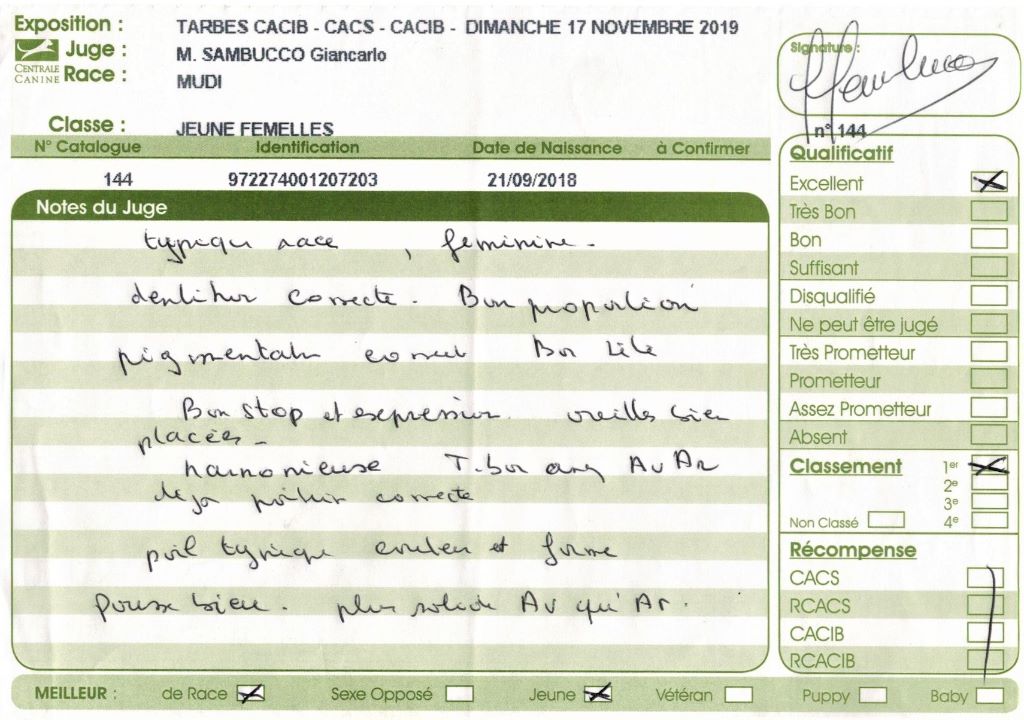 Exposition : TARBES CACIB - CACS - CACIB - DIMANCHE 17 NOVEMBRE 2019
CENTRALE CANINE
Juge : M. SAMBUCCO Giancarlo
Race : MUDI
Classe : JEUNE FEMELLES
Signature :
n° 144
N° Catalogue Identification Date de Naissance à Confirmer
144 972274001207203 21/09/2018
Notes du Juge
typique race , feminine -
dentition correcte . Bon proportion
pigmentation correct Bon tête
Bon stop et expression . oreilles bien
placées -
harmonieuse T. bon ang Av Ar
deja poitrine correcte
poil typique couleur et forme
pousse bien . plus solide Av qu'Ar .
Qualificatif
Excellent
Très Bon
Bon
Suffisant
Disqualifié
Ne peut être jugé
Très Prometteur
Prometteur
Assez Prometteur
Absent
Classement 1er
2e
3e
Non Classé 4e
Récompense
CACS
RCACS
CACIB
RCACIB
MEILLEUR : de Race Sexe Opposé Jeune Vétéran Puppy Baby